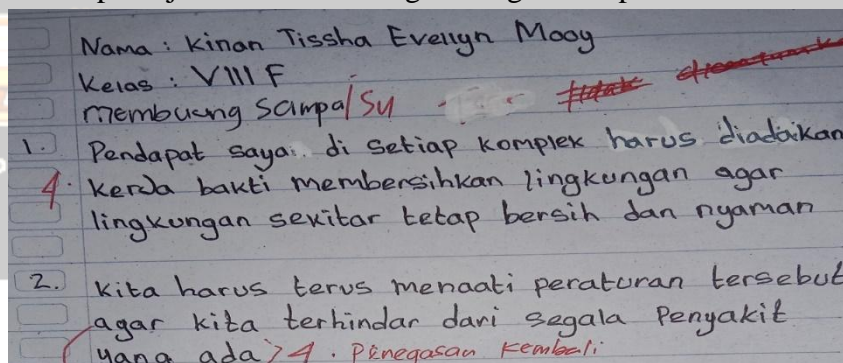 Nama : Kinan Tissha Evellyn Mooy
Kelas : VIII F
membuang sampa/su
1. Pendapat saya.. di setiap komplex harus diadakan
4. kerja bakti membersihkan lingkungan agar
lingkungan sekitar tetap bersih dan nyaman
2. Kita harus terus menaati peraturan tersebut
agar kita terhindar dari segala Penyakit
yang ada > 4. Penegasan kembali